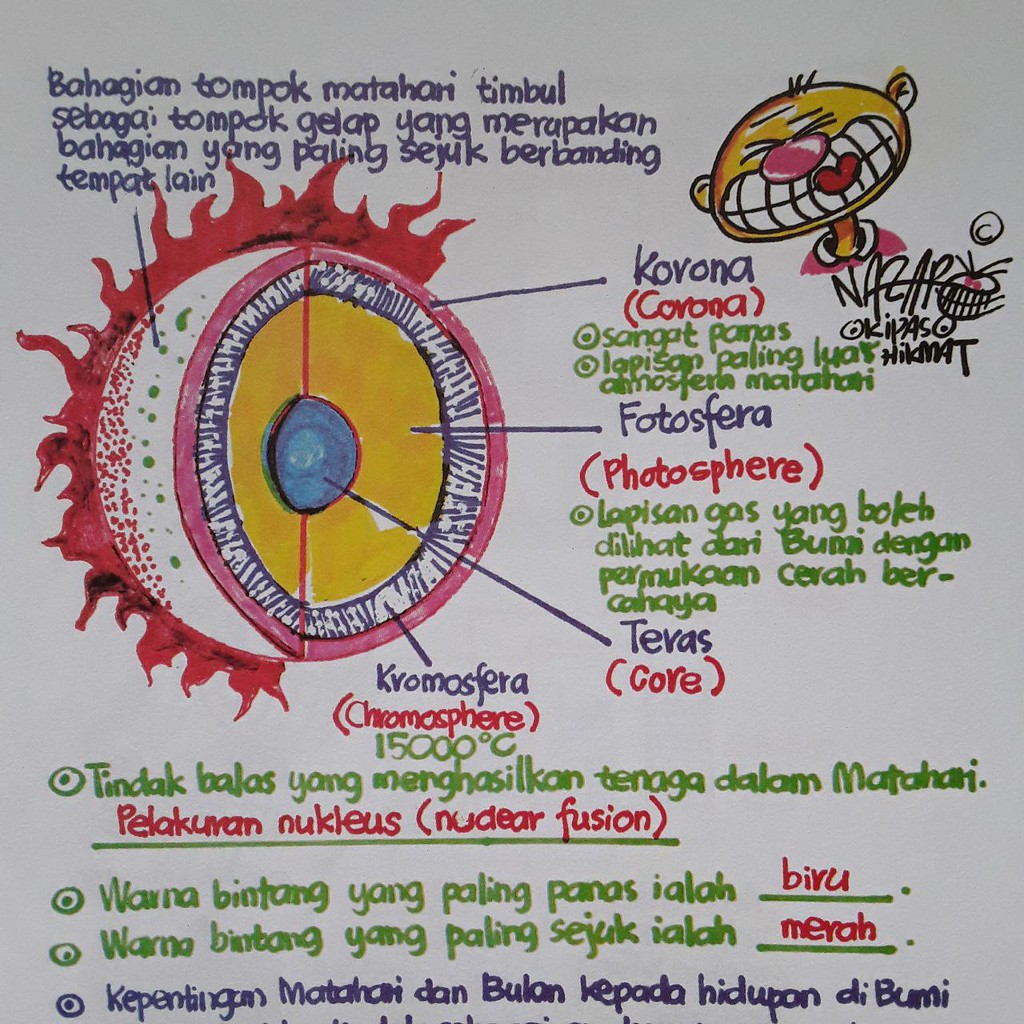 Bahagian tompok matahari timbul
sebagai tompok gelap yang merupakan
bahagian yang paling sejuk berbanding
tempat lain
©
NAZARO
KIPAS
HIKMAT
Korona
(Corona)
sangat panas
lapisan paling luar
atmosfera matahari
Fotosfera
(Photosphere)
Lapisan gas yang boleh
dilihat dari Bumi dengan
permukaan cerah ber-
cahaya
Teras
(Core)
Kromosfera
(Chromosphere)
15000°C
Tindak balas yang menghasilkan tenaga dalam Matahari.
Pelakuran nukleus (nuclear fusion)
Warna bintang yang paling panas ialah biru.
Warna bintang yang paling sejuk ialah merah.
Kepentingan Matahari dan Bulan kepada hidupan di Bumi